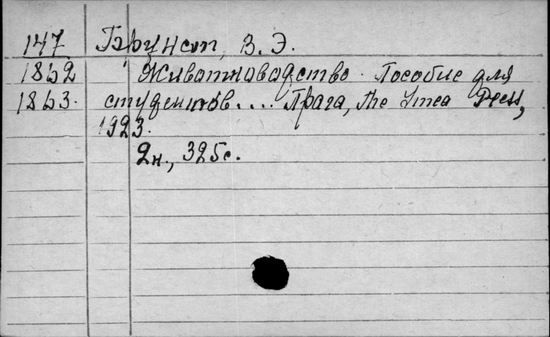 147 Брунст, В. Э.
1862 Животноводство. Пособие для
1863. студентов.... Прага, the Ymca Press,
1923.
2н., 325с.